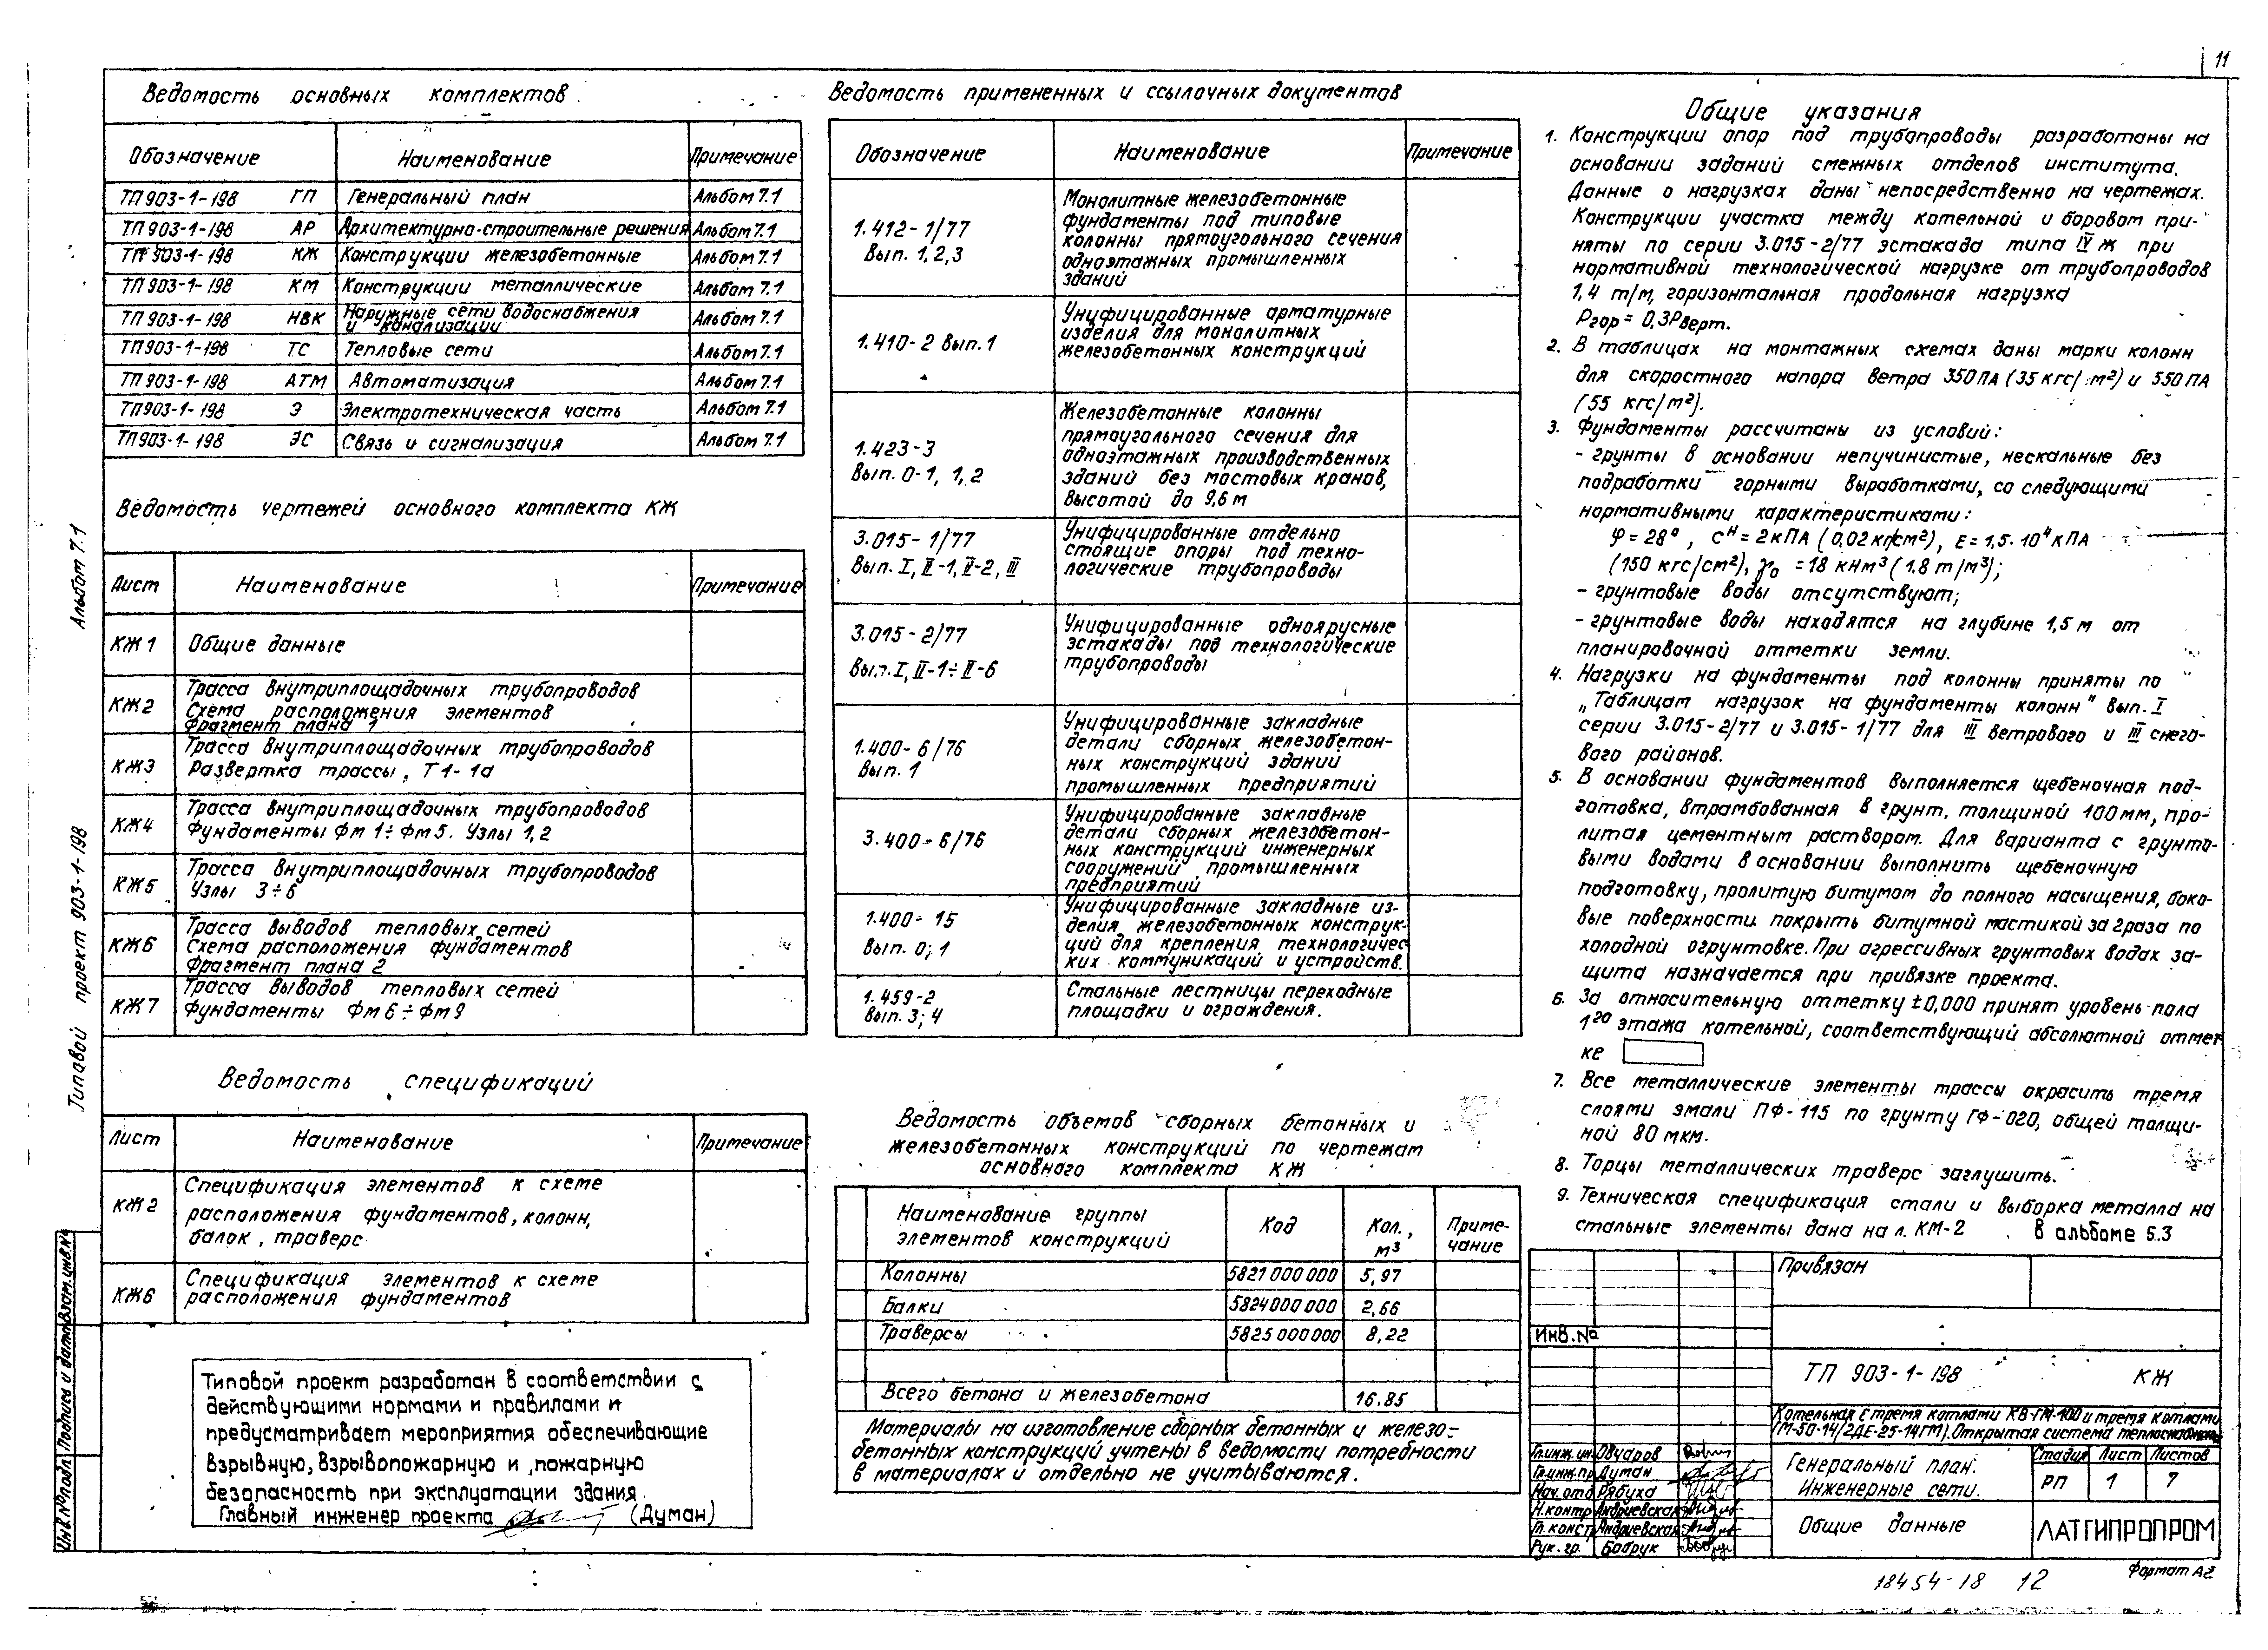 11
Ведомость основных комплектов
Обозначение Наименование Примечание
ТП903-1-198 ГП Генеральный план Альбом 7.1
ТП903-1-198 АР Архитектурно-строительные решения Альбом 7.1
ТП 903-1-198 КЖ Конструкции железобетонные Альбом 7.1
ТП 903-1-198 КМ Конструкции металлические Альбом 7.1
ТП 903-1-198 НВК Наружные сети водоснабжения
и канализации Альбом 7.1
ТП903-1-198 ТС Тепловые сети Альбом 7.1
ТП 903-1-198 АТМ Автоматизация Альбом 7.1
ТП903-1-198 Э Электротехническая часть Альбом 7.1
ТП903-1-198 ЭС Связь и сигнализация Альбом 7.1
Ведомость чертежей основного комплекта КЖ
Лист Наименование Примечание
КЖ1 Общие данные
КЖ2 Трасса внутриплощадочных трубопроводов
Схема расположения элементов
Фрагмент плана 1
КЖ3 Трасса внутриплощадочных трубопроводов
Развертка трассы, Т1-1а
КЖ4 Трасса внутриплощадочных трубопроводов
Фундаменты Фм 1÷Фм 5. Узлы 1,2
КЖ5 Трасса внутриплощадочных трубопроводов
Узлы 3÷6
КЖ6 Трасса выводов тепловых сетей
Схема расположения фундаментов
Фрагмент плана 2
КЖ7 Трасса выводов тепловых сетей
Фундаменты Фм 6÷Фм 9
Ведомость спецификаций
Лист Наименование Примечание
КЖ2 Спецификация элементов к схеме
расположения фундаментов, колонн,
балок, траверс
КЖ6 Спецификация элементов к схеме
расположения фундаментов
Типовой проект разработан в соответствии с
действующими нормами и правилами и
предусматривает мероприятия обеспечивающие
взрывную, взрывопожарную и пожарную
безопасность при эксплуатации здания.
Главный инженер проекта (Думан)
Ведомость примененных и ссылочных документов
Обозначение Наименование Примечание
1.412-1/77
Вып. 1,2,3
Монолитные железобетонные
фундаменты под типовые
колонны прямоугольного сечения
одноэтажных промышленных
зданий
1.410-2 Вып.1
Унифицированные арматурные
изделия для монолитных
железобетонных конструкций
1.423-3
Вып. 0-1, 1, 2
Железобетонные колонны
прямоугольного сечения для
одноэтажных производственных
зданий без мостовых кранов,
высотой до 9,6 м
3.015-1/77
Вып. I, II-1, II-2, III
Унифицированные отдельно
стоящие опоры под техно-
логические трубопроводы
3.015-2/77
Вып. I, II-1÷II-6
Унифицированные одноярусные
эстакады под технологические
трубопроводы
1.400-6/76
Вып. 1
Унифицированные закладные
детали сборных железобетон-
ных конструкций зданий
промышленных предприятий
3.400-6/76
Унифицированные закладные
детали сборных железобетон-
ных конструкций инженерных
сооружений промышленных
предприятий
1.400-15
Вып. 0; 1
Унифицированные закладные из-
делия железобетонных конструк-
ций для крепления технологичес
ких коммуникаций и устройств.
1.459-2
Вып. 3; 4
Стальные лестницы переходные
площадки и ограждения.
Ведомость объемов сборных бетонных и
железобетонных конструкций по чертежам
основного комплекта КЖ
Наименование группы
элементов конструкций
Код Кол., м³ Приме-
чание
Колонны 5821000000 5,97
Балки 5824000000 2,66
Траверсы 5825000000 8,22
Всего бетона и железобетона 16.85
Материалы на изготовление сборных бетонных и железо-
бетонных конструкций учтены в ведомости потребности
в материалах и отдельно не учитываются.
Общие указания
1. Конструкции опор под трубопроводы разработаны на
основании заданий смежных отделов института.
Данные о нагрузках даны непосредственно на чертежах.
Конструкции участка между котельной и боровом при-
няты по серии 3.015-2/77 эстакада типа IV ж при
нормативной технологической нагрузке от трубопроводов
1,4 т/м, горизонтальная продольная нагрузка
Ргор = 0,3Рверт.
2. В таблицах на монтажных схемах даны марки колонн
для скоростного напора ветра 350 ПА (35 кгс/м²) и 550 ПА
(55 кгс/м²).
3. Фундаменты рассчитаны из условий:
- грунты в основании непучинистые, нескальные без
подработки горными выработками, со следующими
нормативными характеристиками:
φ=28°, Cᴴ=2кПА (0,02 кг/см²), E=1,5·10⁴ кПА
(150 кгс/см²), γo = 18 кНм³ (1.8 т/м³);
- грунтовые воды отсутствуют;
- грунтовые воды находятся на глубине 1,5 м от
планировочной отметки земли.
4. Нагрузки на фундаменты под колонны приняты по
„Таблицам нагрузок на фундаменты колонн" вып. I
серии 3.015-2/77 и 3.015-1/77 для III ветрового и III снего-
вого районов.
5. В основании фундаментов выполняется щебеночная под-
готовка, втрамбованная в грунт, толщиной 100мм, про-
литая цементным раствором. Для варианта с грунто-
выми водами в основании выполнить щебеночную
подготовку, пролитую битумом до полного насыщения, боко-
вые поверхности покрыть битумной мастикой за 2 раза по
холодной огрунтовке. При агрессивных грунтовых водах за-
щита назначается при привязке проекта.
6. За относительную отметку ±0,000 принят уровень пола
1го этажа котельной, соответствующий абсолютной отмет
ке
7. Все металлические элементы трассы окрасить тремя
слоями эмали ПФ-115 по грунту ГФ-020, общей толщи-
ной 80 мкм.
8. Торцы металлических траверс заглушить.
9. Техническая спецификация стали и выборка металла на
стальные элементы дана на л. КМ-2 в альбоме 5.3
Привязан
Инв.№
ТП 903-1-198 КЖ
Котельная с тремя котлами КВ-ГМ-100 и тремя котлами
ГМ-50-14/2ДЕ-25-14ГМ). Открытая система теплоснабжения
Гл.инж.ин Овчаров
Гл.инж.пр Думан
Нач.отд Рябуха
Н.контр Андриевская
Гл.конст Андриевская
Рук.гр. Бобрук
Генеральный план.
Инженерные сети.
Стадия Лист Листов
РП 1 7
Общие данные
ЛАТГИПРОПРОМ
Формат А2
18454-18 12
Альбом 7.1
Типовой проект 903-1-198
Инв.№подл. Подпись и дата Взам.инв.№